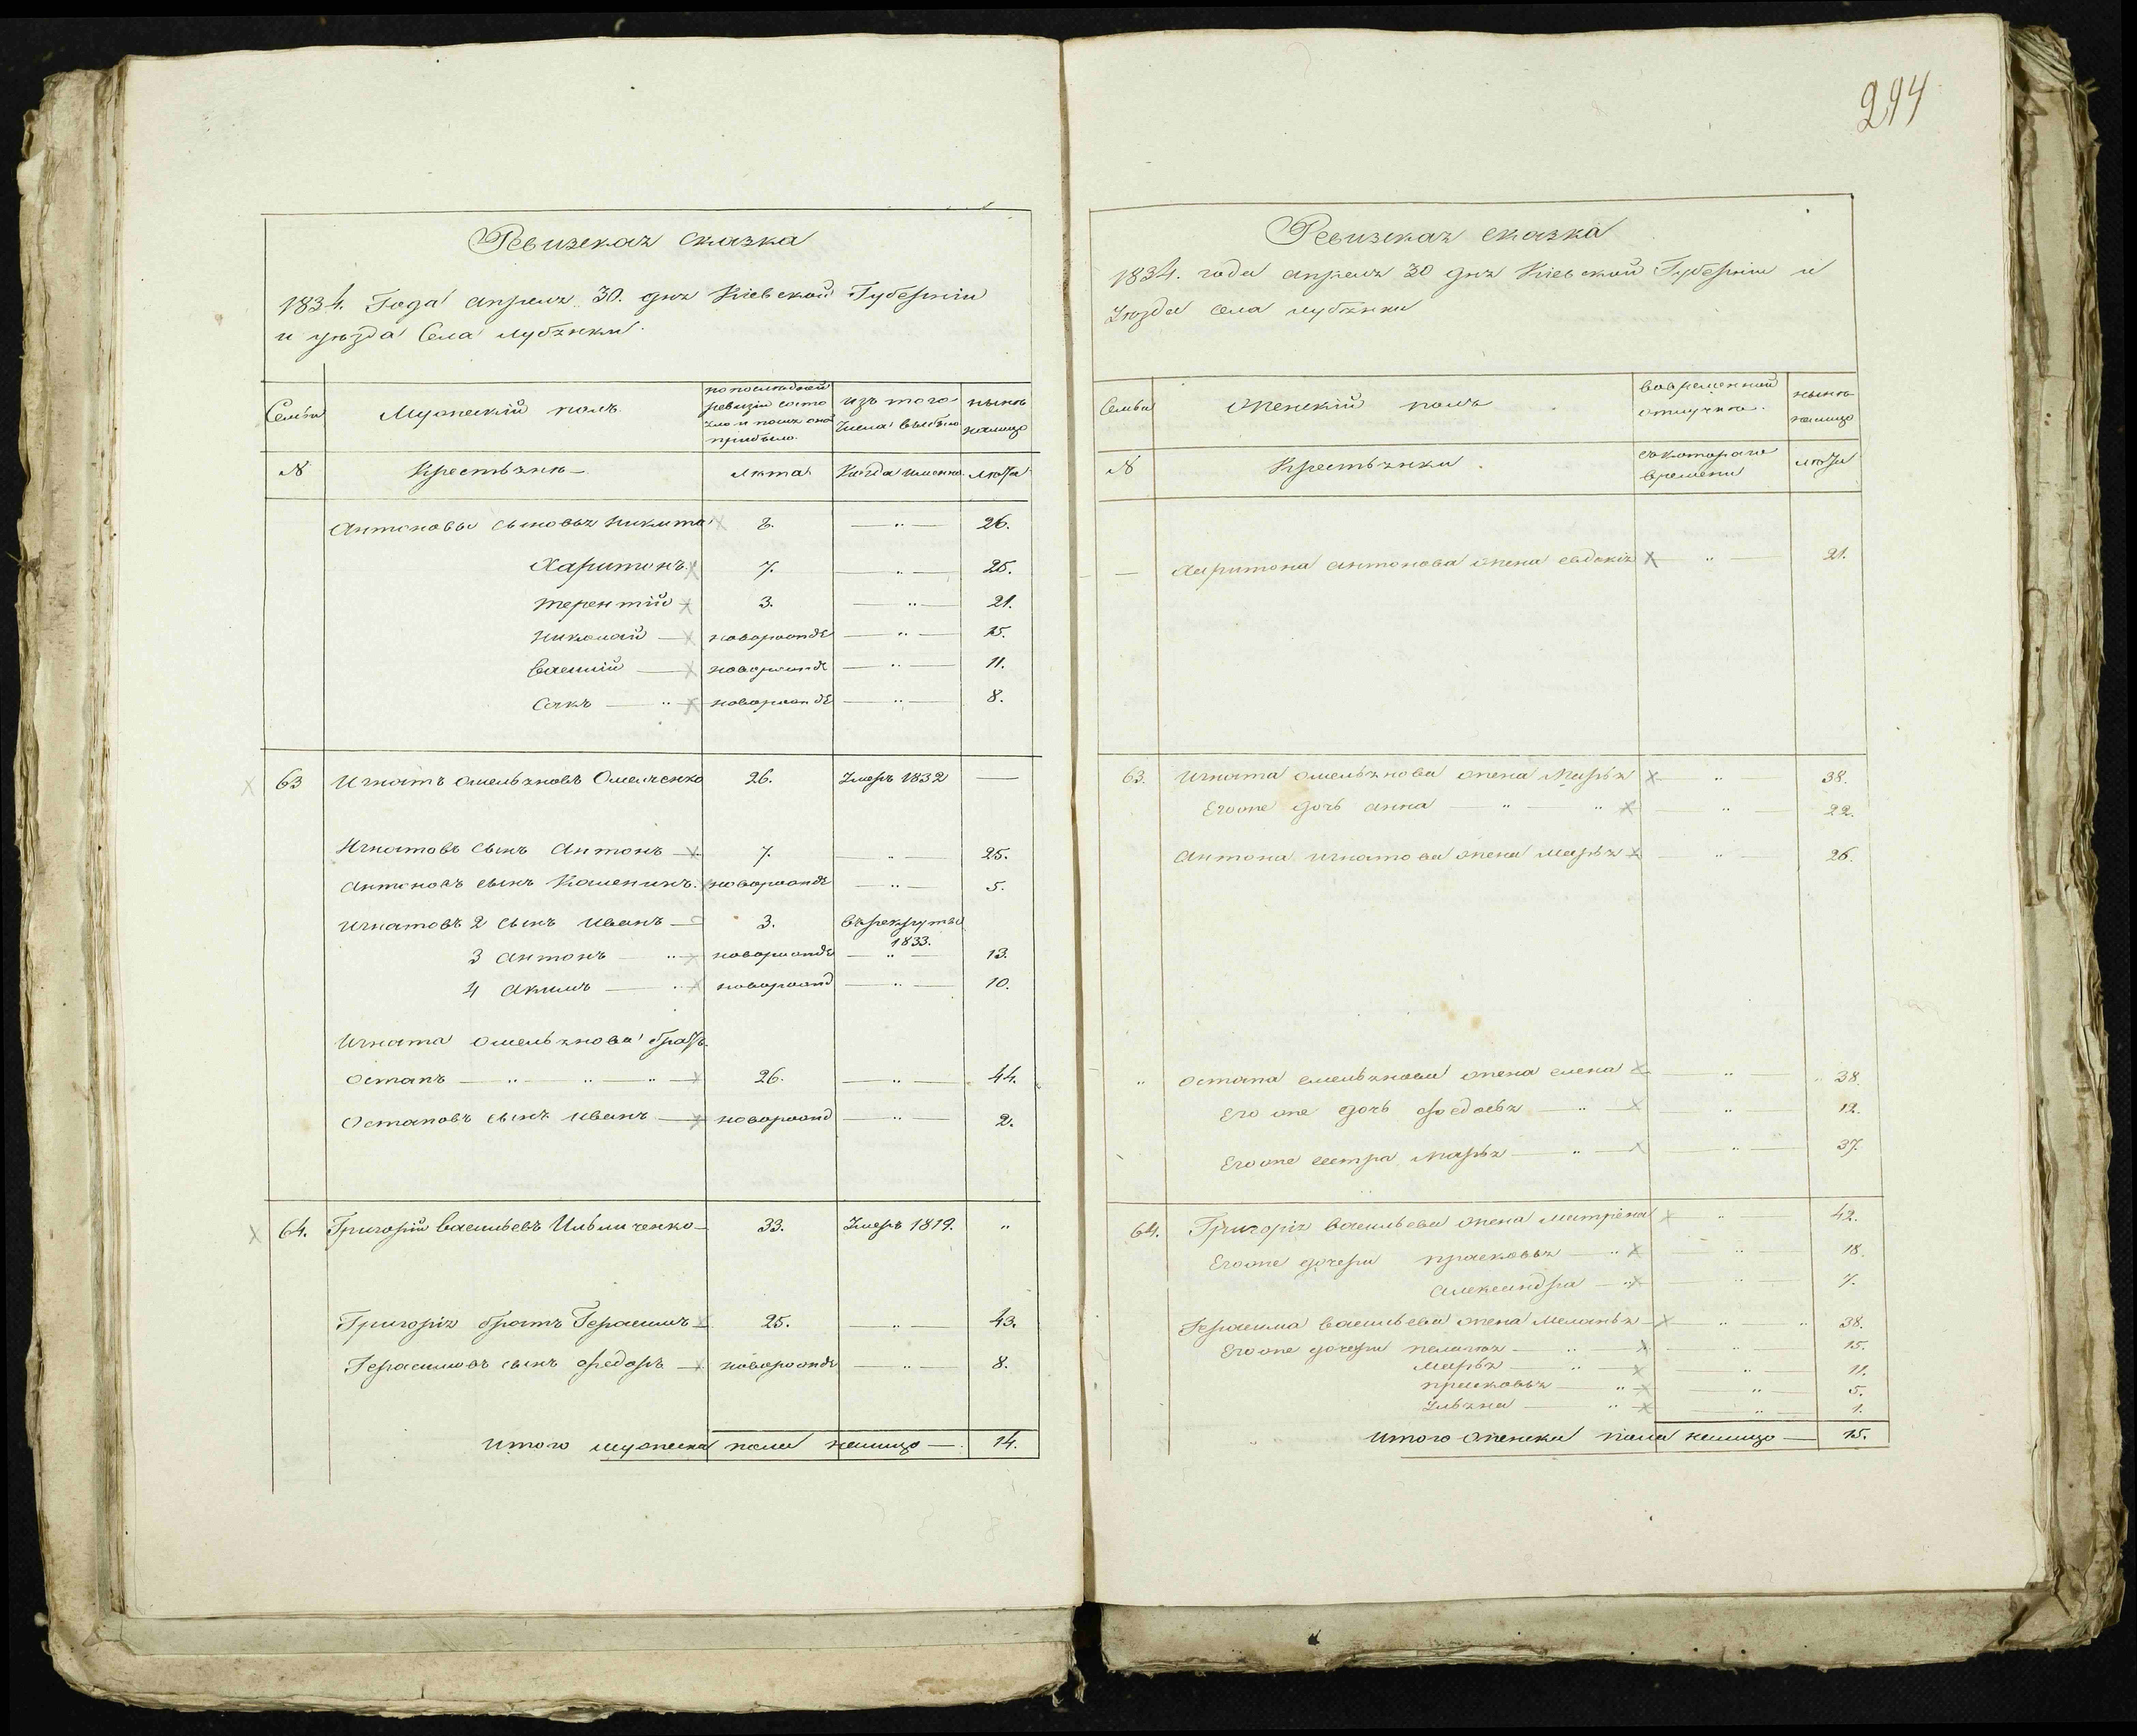 294
Ревизская сказка
1834. Года апреля 30. дня Кіевской Губерніи
и уѣзда Села Лубянки
Семьи
Мужескій полъ
по последней ревизіи состояло и после оной прибыло
изъ того числа выбыло
нынѣ налицо
№
Крестьяне
Лѣта
Когда именно
Лѣта
Антоновы сыновья Никита 8. — " — 26.
Харитонъ 7. — " — 25.
Терентій 3. — " — 21.
Николай — новорожде — " — 15.
Василій — новорожде — " — 11.
Сакъ — " новорожде — " — 8.
63 Игнатъ Омельяновъ Омелченко 26. Умеръ 1832 —
Игнатовъ сынъ Антонъ — 7. — " — 25.
Антоновъ сынъ новорожде — " — 5.
Игнатовъ 2 сынъ Иванъ — 3. въ рекруты 1833.
3 Антонъ — " новорожде — " — 13.
4 Акимъ — " новорожд — " — 10.
Игната Омельянова братъ
Остапъ — " — " — " — 26. — " — 44.
Остаповъ сынъ Иванъ — новорожд — " — 2.
64. Григорій Васильевъ Ильиченко — 33. Умеръ 1819. "
Григорія братъ Герасимъ — 25. — " — 43.
Герасимовъ сынъ Федоръ — новорожде — " — 8.
Итого мужеска пола налицо — 14.
Ревизская сказка
1834. года апреля 30 дня Кіевской Губерніи и
Уѣзда села Лубянки
Семьи
Женскій полъ
во временной отлучкѣ
нынѣ налицо
№
Крестьянки
съ котораго времени
лѣта
— Харитона Антонова жена Евдокія " — 21.
63. Игната Омельянова жена Марья — " — 38.
Его же дочь Анна — " — " — " — 22.
Антона Игнатова жена Марья — " — 26.
" Остапа Емельянова жена Елена — " — " 38
Его же дочь Федосья — " — " — 12.
Его же сестра Марья — " — " — 37.
64. Григорія Васильева жена Матрена — " — 42.
Его же дочери Прасковья — " — " — 18.
Александра — " — " — 7.
Герасима Васильева жена Меланья — " — " 38.
Его же дочери Пелагея — " — " — 15.
Марья — " — " — 11.
Прасковья — " — " — 5.
Ульяна — " — " — 1.
Итого женска пола налицо — 15.